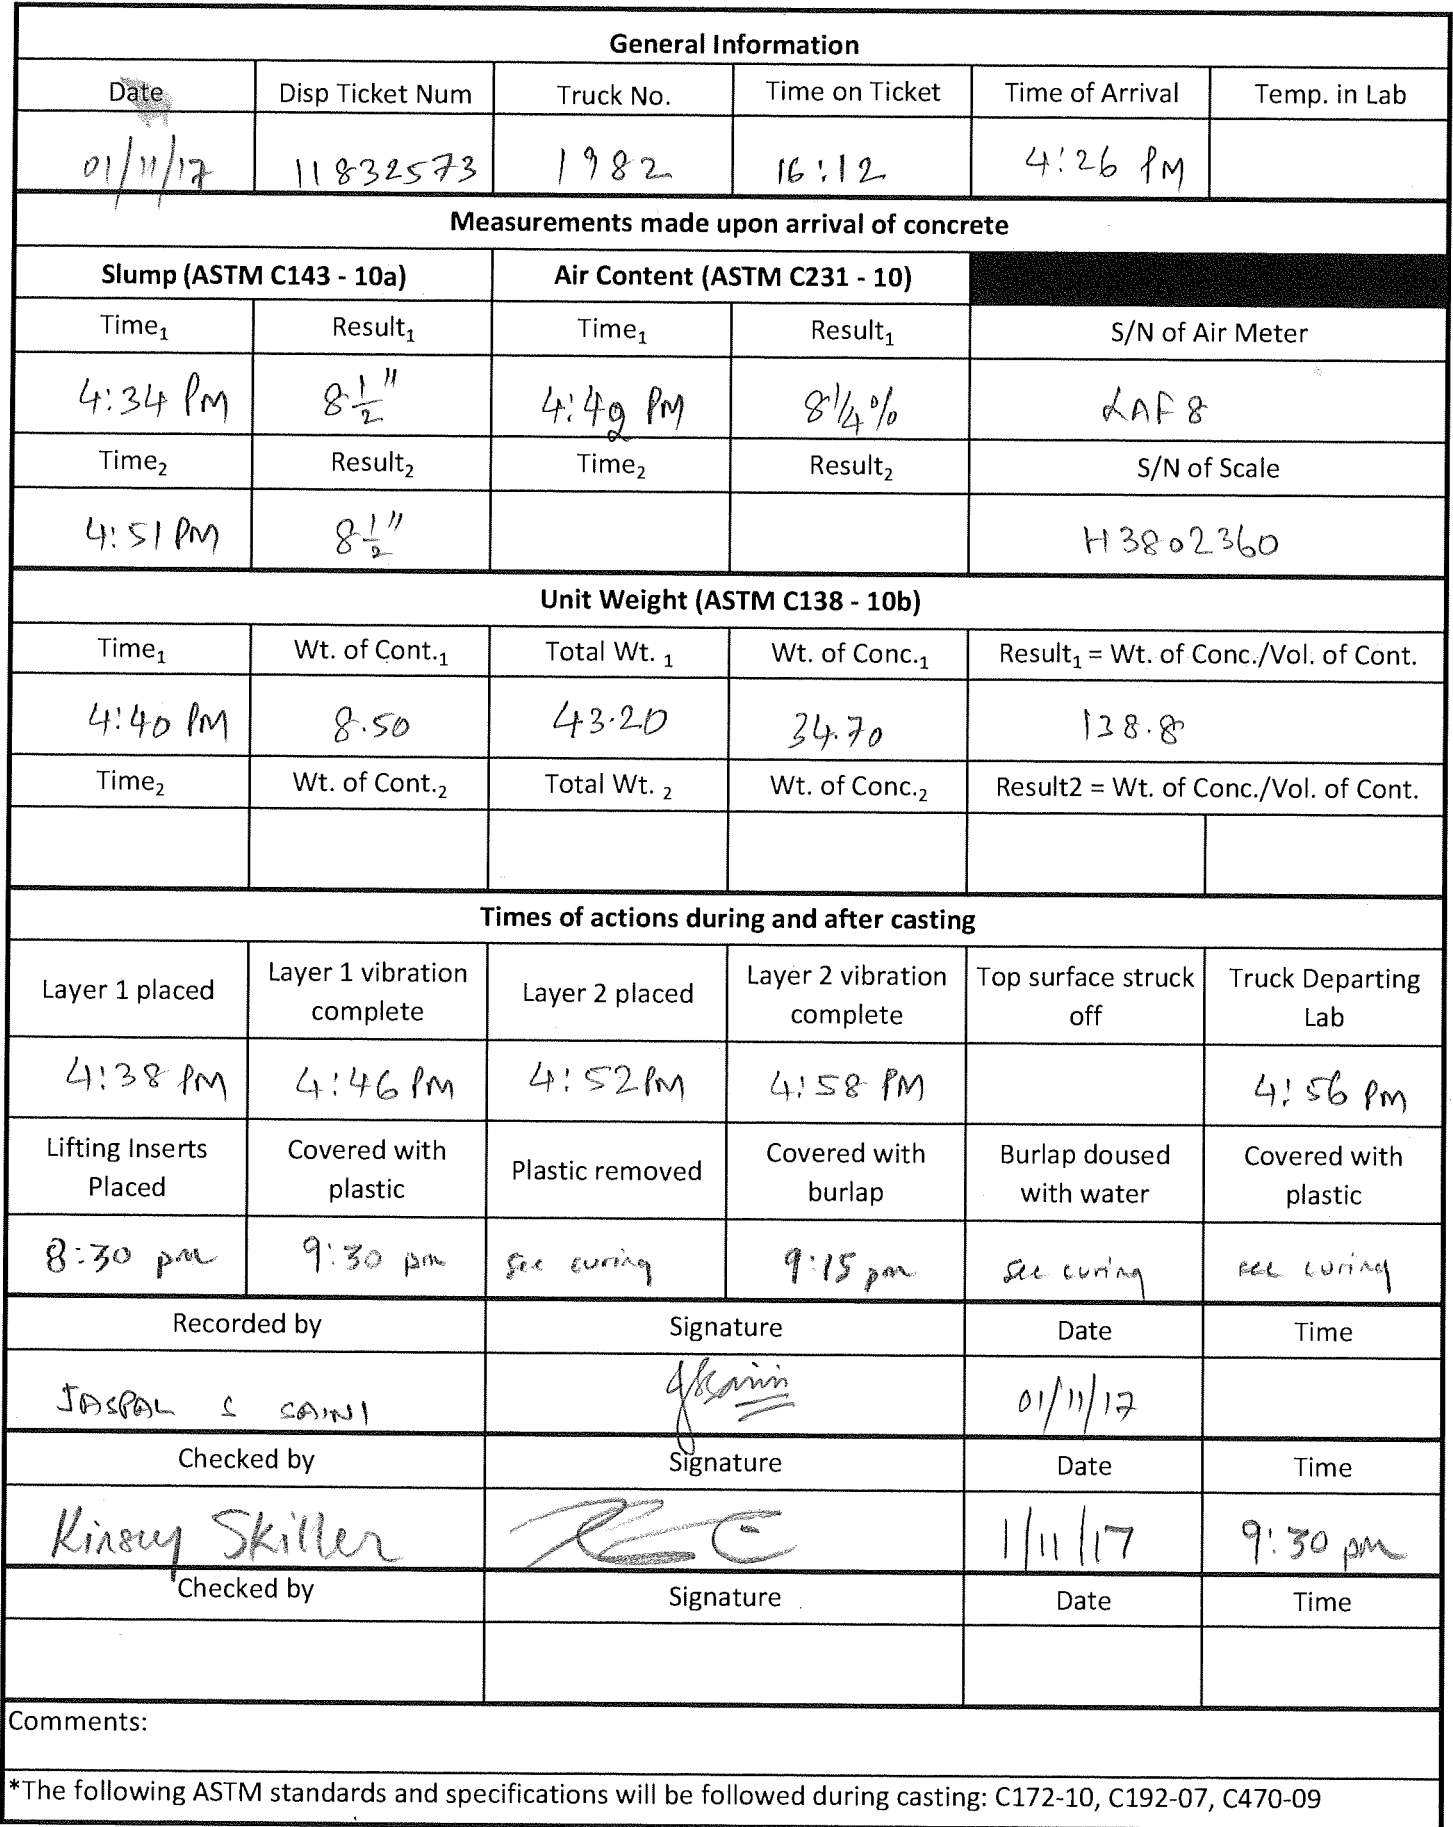 General Information
Date Disp Ticket Num Truck No. Time on Ticket Time of Arrival Temp. in Lab
01/11/17 11832573 1982 16:12 4:26 PM
Measurements made upon arrival of concrete
Slump (ASTM C143 - 10a) Air Content (ASTM C231 - 10)
Time₁ Result₁ Time₁ Result₁ S/N of Air Meter
4:34 PM 8 1/2" PM 8 1/4% LAF 8
Time₂ Result₂ Time₂ Result₂ S/N of Scale
4:51 PM 8 1/2" H3802360
Unit Weight (ASTM C138 - 10b)
Time₁ Wt. of Cont.₁ Total Wt. ₁ Wt. of Conc.₁ Result₁ = Wt. of Conc./Vol. of Cont.
4:40 PM 8.50 43.20 34.70 138.8
Time₂ Wt. of Cont.₂ Total Wt. ₂ Wt. of Conc.₂ Result2 = Wt. of Conc./Vol. of Cont.
Times of actions during and after casting
Layer 1 placed Layer 1 vibration complete Layer 2 placed Layer 2 vibration complete Top surface struck off Truck Departing Lab
4:38 PM 4:46 PM 4:52 PM 4:58 PM 4:56 PM
Lifting Inserts Placed Covered with plastic Plastic removed Covered with burlap Burlap doused with water Covered with plastic
8:30 pm 9:30 pm see curing 9:15 pm see curing see curing
Recorded by Signature Date Time
JASPAL S SAINI 01/11/17
Checked by Signature Date Time
Kinsey Skiller 1/11/17 9:30 pm
Checked by Signature Date Time
Comments:
*The following ASTM standards and specifications will be followed during casting: C172-10, C192-07, C470-09